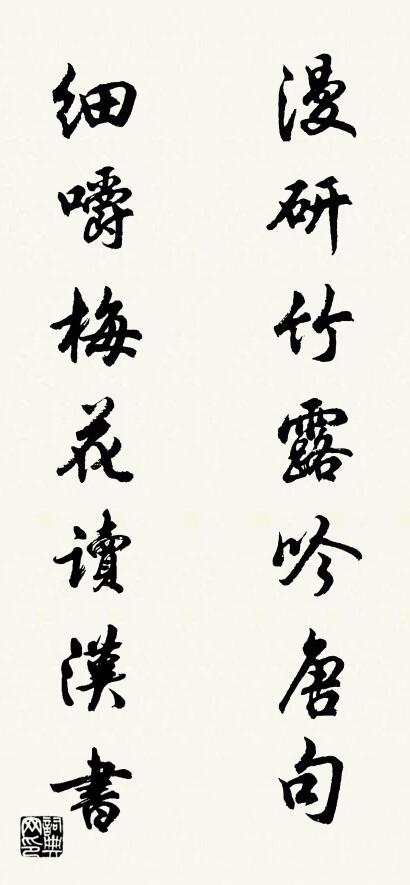 漫研竹露吟唐句
细嚼梅花读漢書
詞典网印